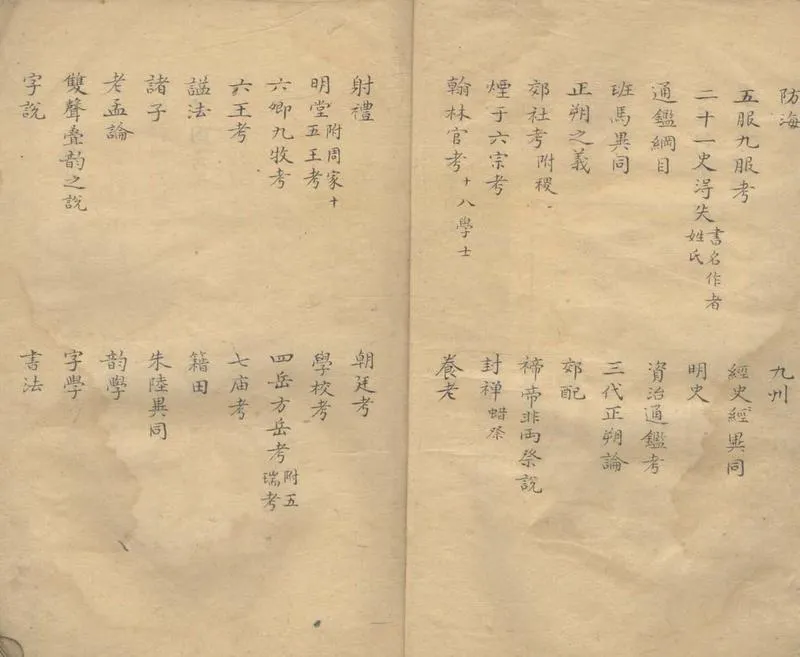 防海
九州
五服九服考
經史經異同
二十一史淂失 書名作者姓氏
明史
通鑑綱目
資治通鑑考
班馬異同
三代正朔論
正朔之義
郊配
郊社考 附稷
禘帝非両祭說
煙于六宗考
封禅 蜡祭
翰林官考 十八學士
養老
射禮
朝廷考
明堂 附周家十五王考
學校考
六卿九牧考
四岳方岳考 附五瑞考
六王考
七庙考
謚法
籍田
諸子
朱陸異同
老孟論
韵學
雙聲疊韵之說
字學
字說
書法